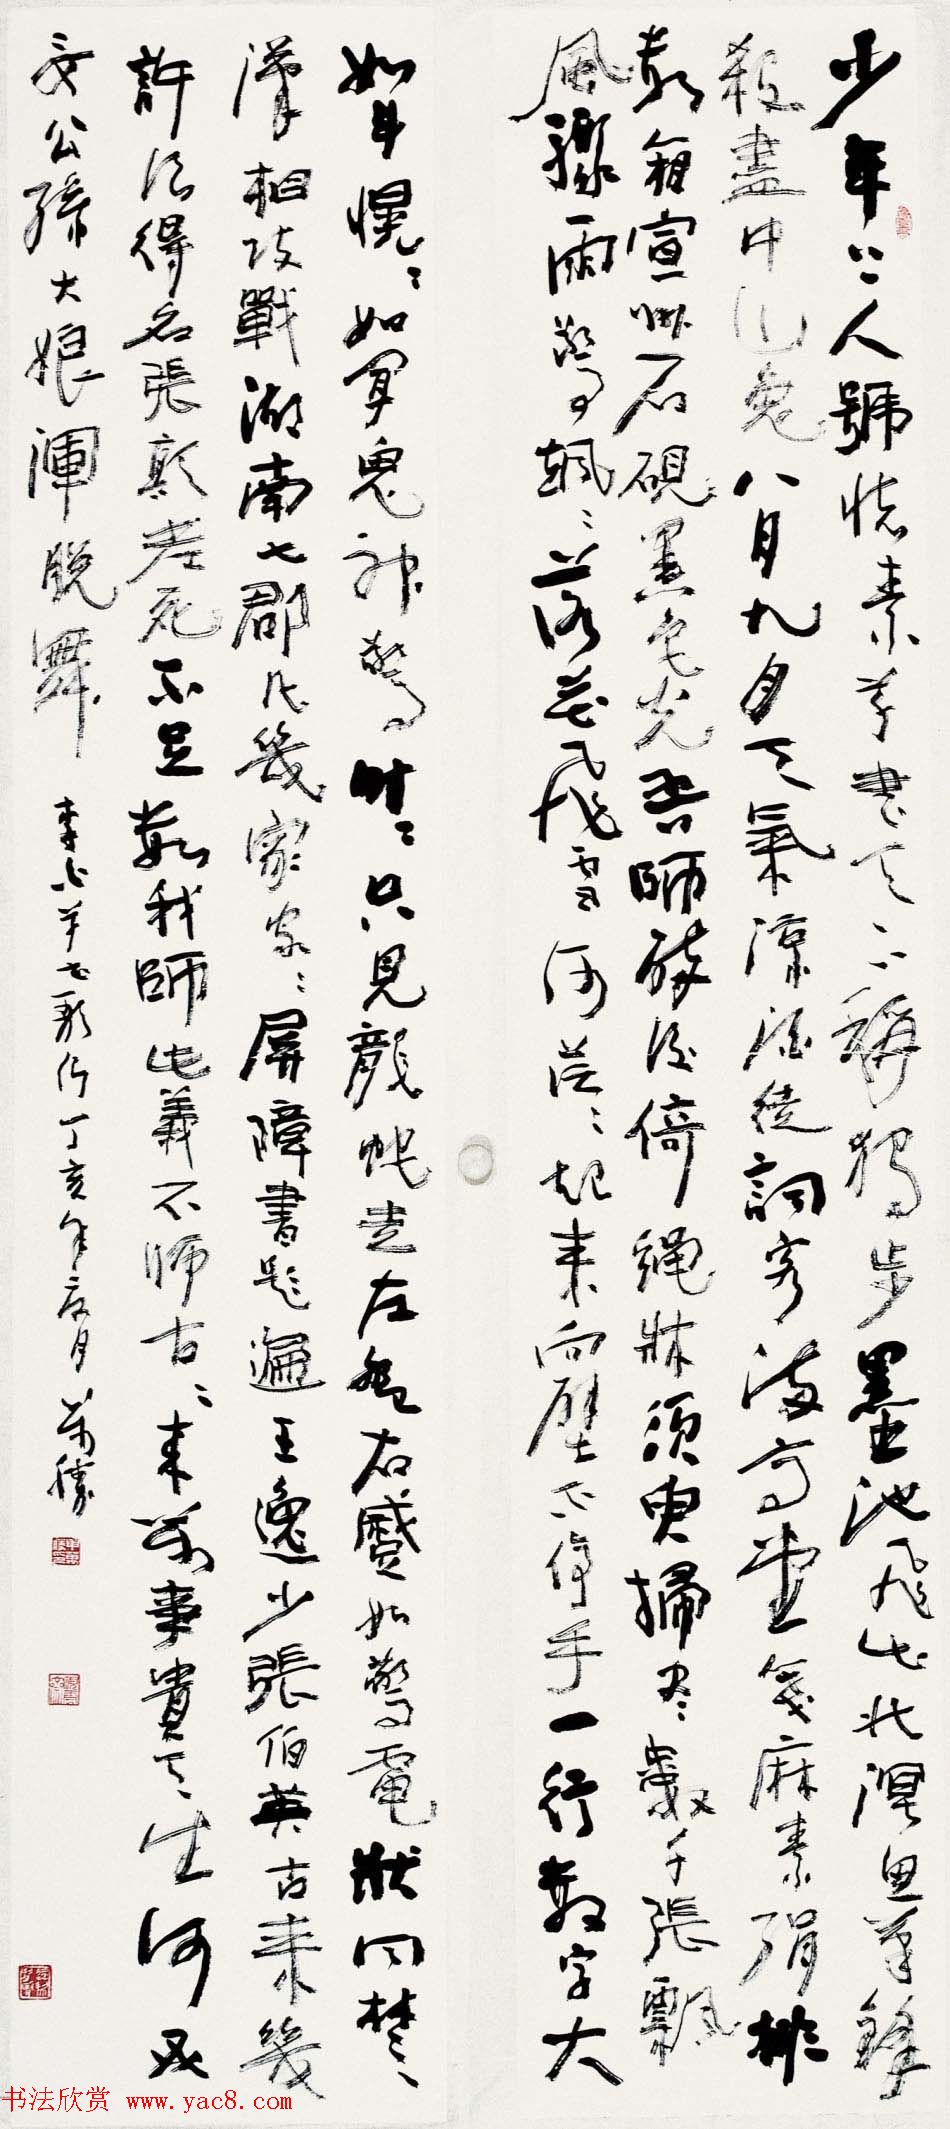 少年上人號懷素草書天下稱獨步墨池飛出北溟魚筆鋒
殺盡中山兔八月九月天氣凉酒徒詞客滿高堂箋麻素絹排
數箱宣州石硯墨色光吾師醉後倚繩牀須臾掃尽數千張飄
風驟雨驚颯〻落花飛雪何茫〻起來向壁不停手一行數字大
如斗愰〻如聞鬼神驚時〻只見龍蛇走左盤右蹙如驚電狀同楚
漢相攻戰湖南七郡凡幾家家〻屏障書題遍王逸少張伯英古來幾
許浪得名張顛老死不足數我師此義不師古〻來萬事貴天生何必
要公孫大娘渾脫舞
李白草书歌行丁亥年 月 萬勝
书法欣赏 www.yac8.com